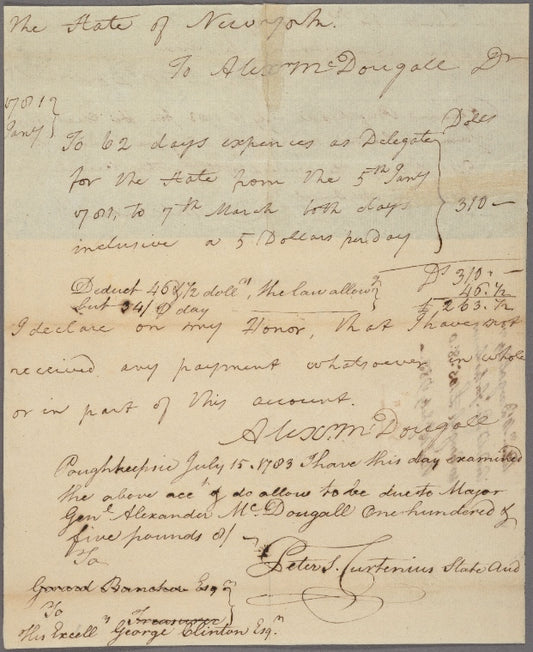 The State of New york.
To Alexr McDougall Dr
1781 }
Jany }
Dolls
To 62 days expences as Delegate
for the State from the 5th Jany
1781, to 7th March both days
inclusive a 5 Dollars per day
310 —
Deduct 46 1/2 dollrs, the law allowg
but 34/ ⅌ day
Ds 310 . —
46. 1/2
263. 1/2
I declare on my Honor, that I have not
received any payment whatsoever, in whole
or in part of this account.
Alexr. McDougall
Poughkeepsie July 15. 1783 I have this day examined
the above acct & do allow to be due to Major
Genl. Alexander Mc. Dougall One hundred &
five pounds 8/
To
Peter T. Curtenius State Aud
Gerard Bancker Esqr
Treasurer
To
His Excelly George Clinton Esqr